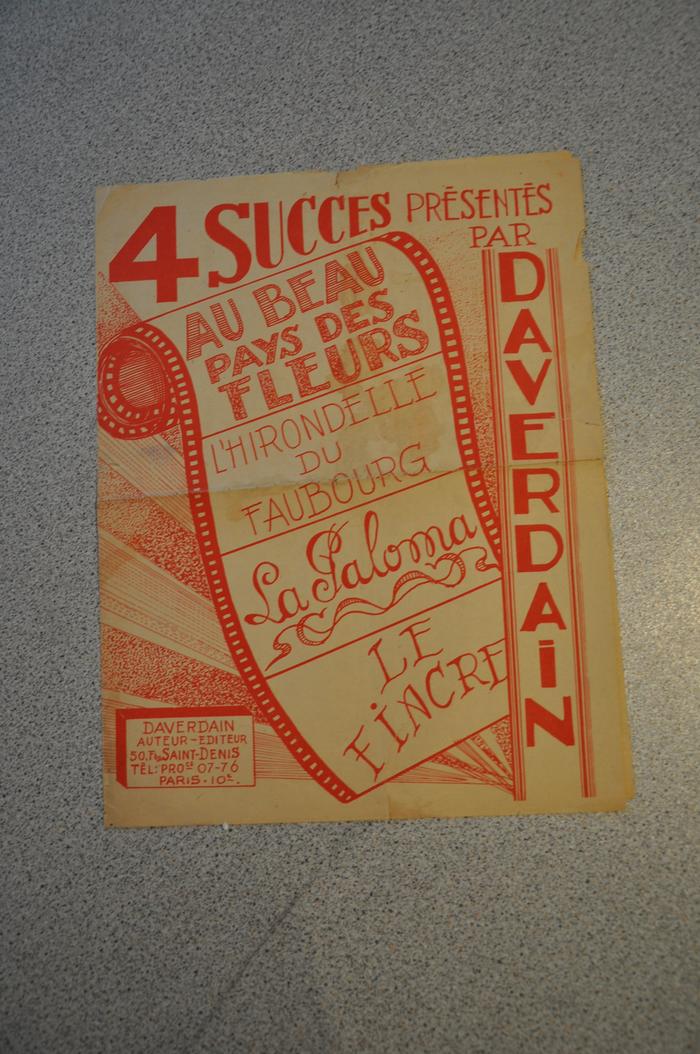 4 SUCCES PRÉSENTÉS
PAR
DAVERDAIN
AU BEAU
PAYS DES
FLEURS
L'HIRONDELLE
DU
FAUBOURG
La Paloma
LE
FIACRE
DAVERDAIN
AUTEUR-EDITEUR
50, Fg SAINT-DENIS
TÉL: PROce 07-76
PARIS-10e.